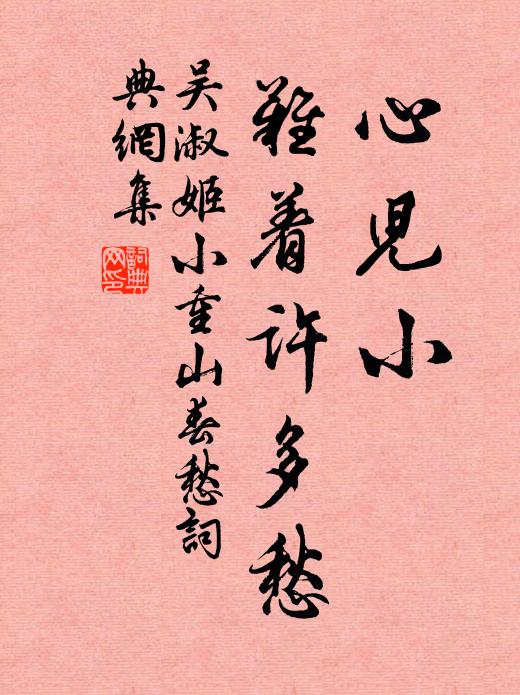 心兒小
難着許多愁
吴淑姬小重山春愁詞
典網集
詞典
网印